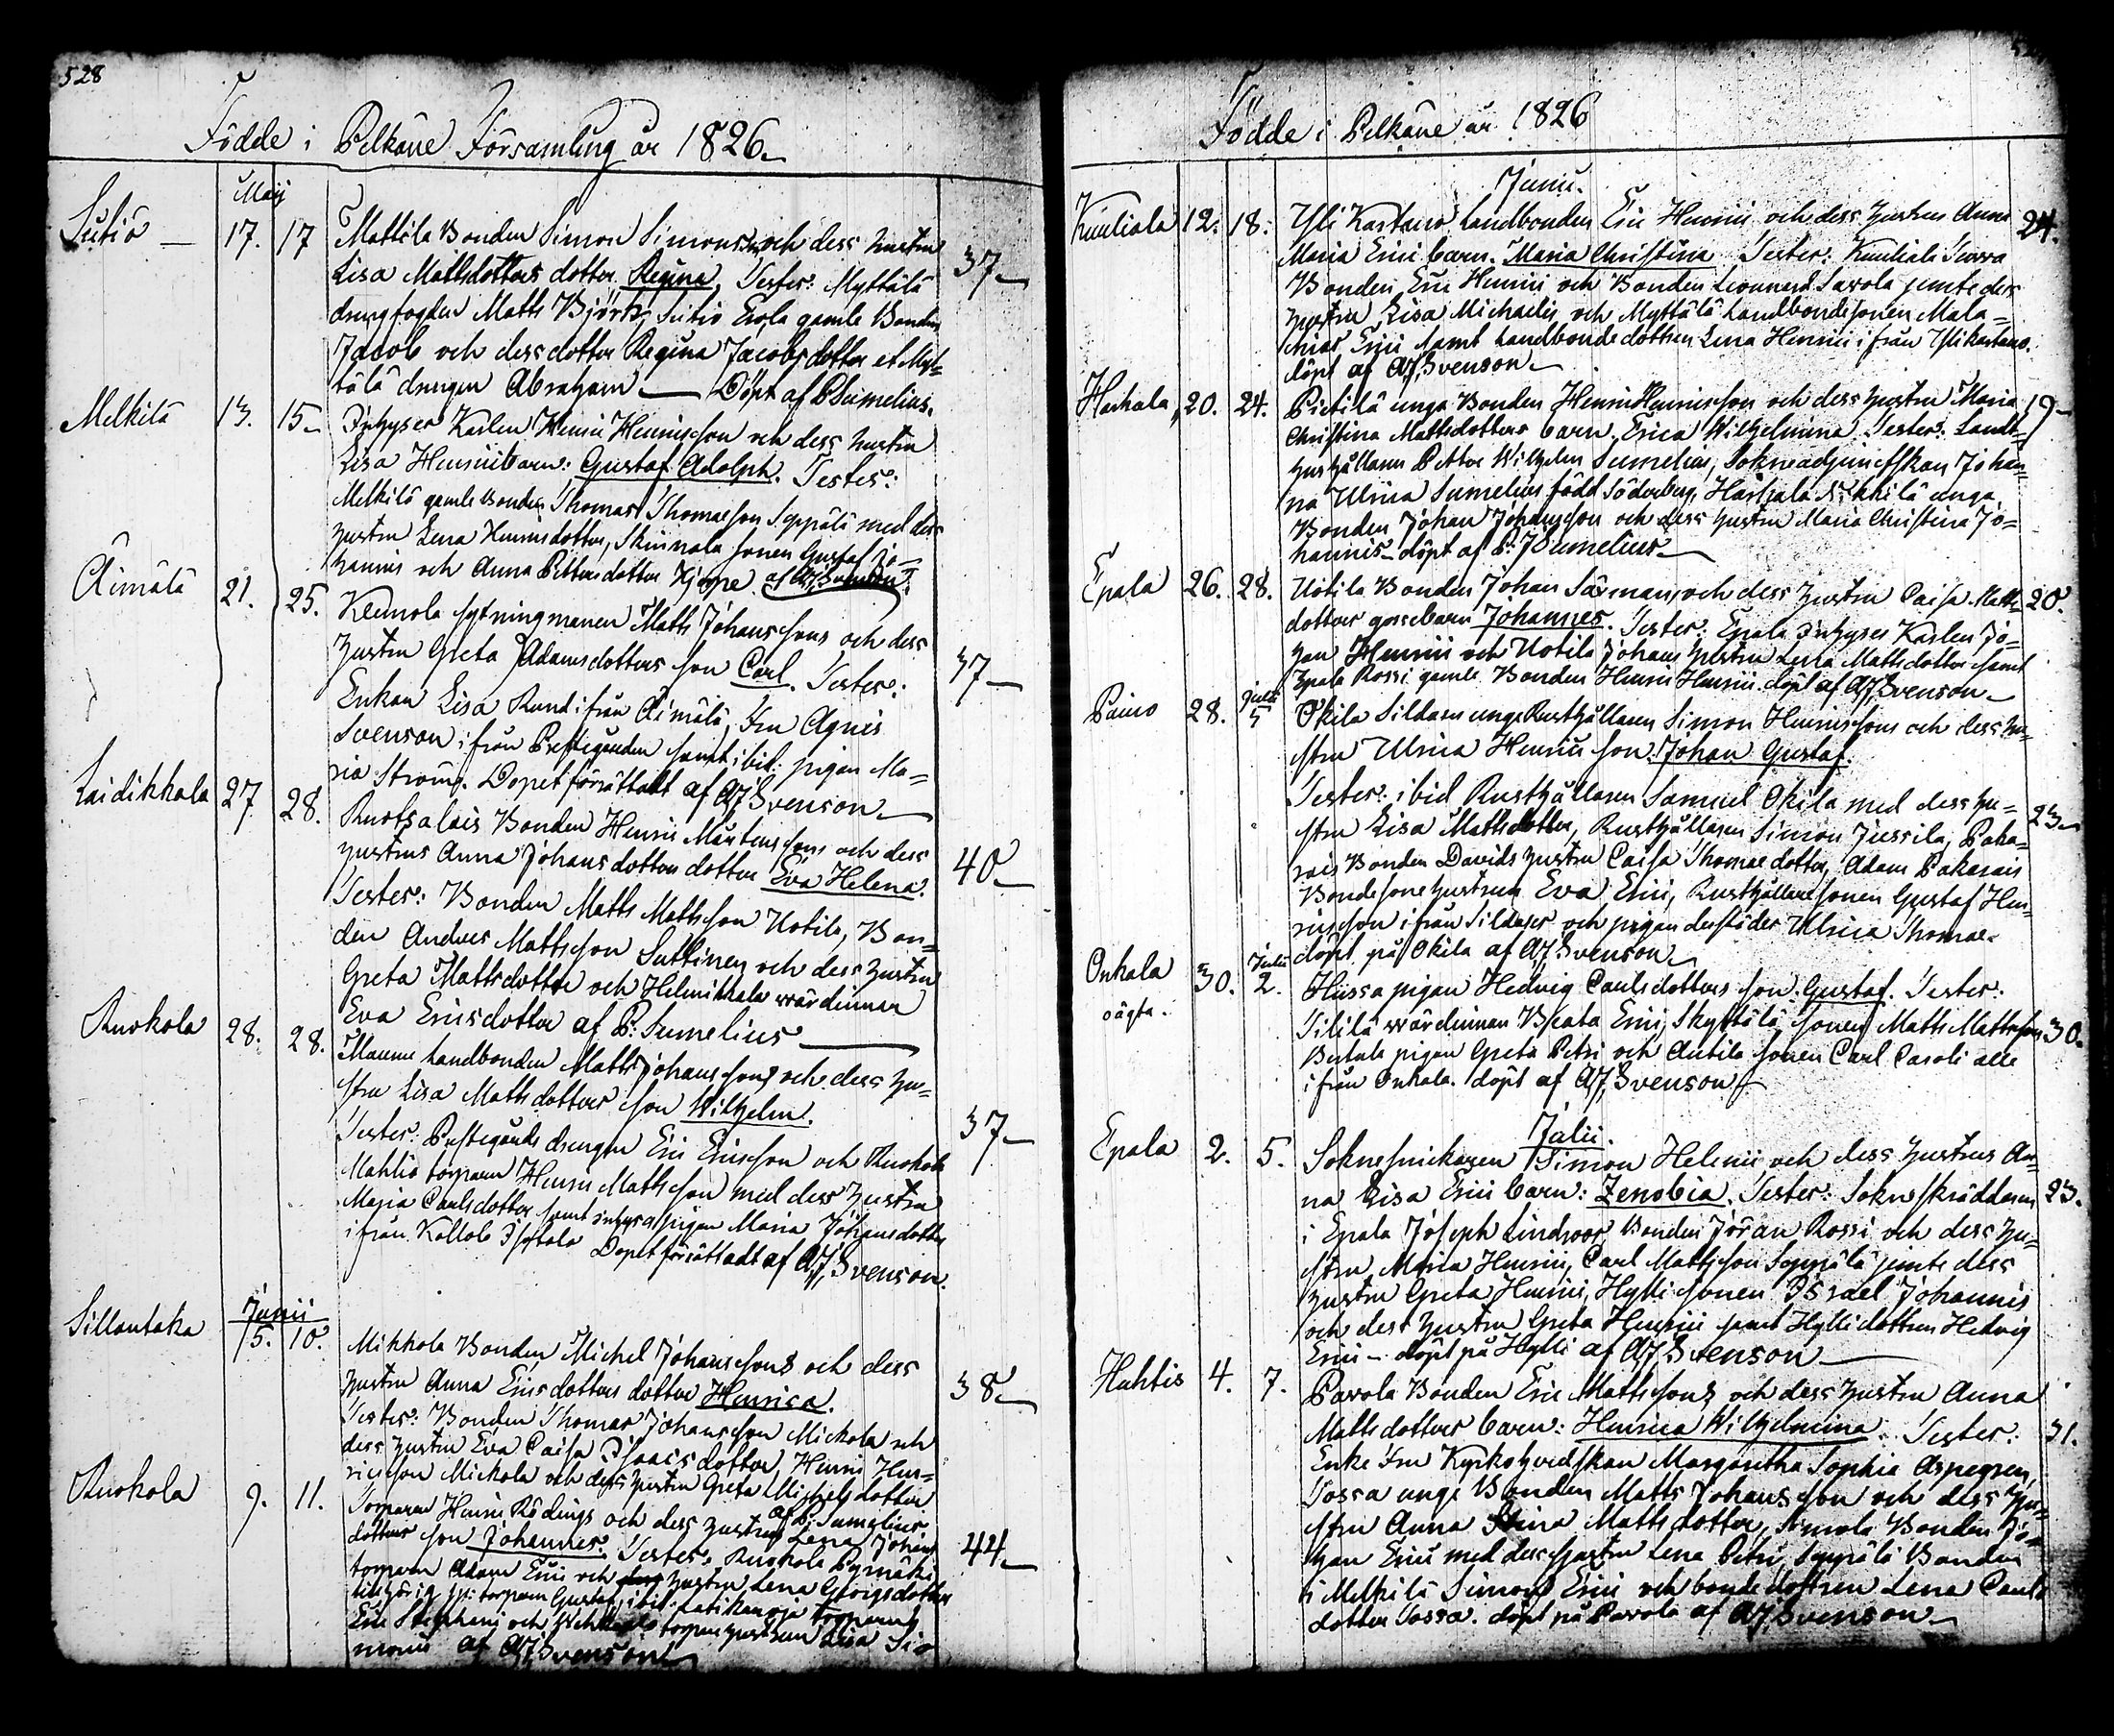 528
Födde i Pelkäne Församling år 1826.
Maij
Sutio — 17. 17 Mattila Bonden Simon Simonssons och dess hustru
Lisa Mattsdotters dotter Regina, Tester: Myttälä 37
drengfogden Matts Björk, Sutio Erola gamle Bonden
Jacob och dess dotter Regina Jacobsdotter et Myt=
tälä drengen Abraham — Döpt af P Sumelius.
Melkilä 13. 15 Inhyses Karlen Henric Henricsson och dess hustru
Lisa Henrici barn: Gustaf Adolph. Tester:
Melkilä gamle Bonden Thomas Thomasson Seppälä med dess
hustru Lena Henricsdotter, sonen Gustaf Jo=
hannis och Anna Pettersdotter af AJ Svenson.
Äimälä 21. 25. Klemola sytningmannen Matts Johanssons och dess
hustru Greta Adamsdotters son Carl. Tester: 37
Enkan Lisa Rund ifrån Äimälä, Fru Agnes
Svenson ifrån Prestegården samt ibid: pigan Ma=
ria Ströng. Dopet förrättadt af AJ Svenson
Laidikkala 27 28. Ruotsalais Bonden Henric Mårtenssons och dess
hustrus Anna Johansdotters dotter Eva Helena. 40
Tester: Bonden Matts Mattsson Uotila, Bon=
den Anders Mattsson Suttinen och dess hustru
Greta Mattsdotter och Helmikkala värdinnan
Eva Ericsdotter af P: Sumelius
Ruokola 28. 28. Maunu landbonden Matts Johanssons och dess hu=
stru Lisa Mattsdotters son Wilhelm. 37
Tester: Prestegårds drengen Eric Ericsson och Ruokola
Mahlio torparen Henric Mattsson med dess hustru
Maja Carlsdotter samt inhyses pigan Maria Johansdotter
ifrån Dopet förrättadt af AJ Svenson.
Junii
Sillantaka 5. 10. Mikkola Bonden Michel Johanssons och dess
hustru Anna Ericsdotters dotter Henrica. 38
Tester: Bonden Thomas Johansson Mickola och
dess hustru Eva Caisa Isaacsdotter, Henric Hen=
ricsson Mickola och dess hustru Greta Michelsdotter
af P: Sumelius
Ruokola 9. 11. Torparen Henric Rödings och dess hustrus Lena Johans
dotters son Johannes. Tester: Ruokola 44
torparen Adam Erici och hustru Lena Georgsdotter
torparen Gustaf, ibid. torparen
Eric Stephani och torpare hustrun Lisa Si=
monis af AJ Svenson
Födde i Pelkäne år 1826
Junii.
Kuuliala 12. 18. Yli Kartano Landbonden Eric Henrici och dess hustrus Anna 24.
Maria Erici barn. Maria Christina Tester: Kuuliala
Bonden Eric Henrici och Bonden Leonnard Savola jemte dess
hustru Lisa Michaelis och Myttälä landbondesonen Mala=
chias Erici samt landbonde dottren Lena Henrici ifrån Ylikartano.
döpt af AJ Svenson
Harhala 20. 24. Pietilä unga Bonden Henric Henricsson och dess hustru Maria 19
Christina Mattsdotters barn. Erica Wilhelmina Tester: Landt=
hushållaren Petter Wilhelm Sumelius, Sokneadjunctskan Johan=
na Ulrica Sumelius född Söderberg, Harhala Nikkilä unga
Bonden Johan Johansson och dess hustru Maria Christina Jo=
hannis — döpt af P: J Sumelius
Epala 26. 28. Uotila Bonden Johan Särmans och dess hustru Caisa Matts= 20.
dotters gossebarn Johannes. Tester: Epala Inhyses Karlen Jo=
han Henrici och Uotila Johans hustru Lena Mattsdotter samt
Epala Rossi gamle Bonden Henric Henrici. döpt af AJ Svenson
Paino 28. Julii 5 Okila Sildasen unge Rusthållaren Simon Henricssons och dess hu=
stru Ulrica Henrici son. Johan Gustaf.
Tester: ibid Rusthållaren Samuel Okila med dess hu= 23
stru Lisa Mattsdotter, Rusthållaren Simon Jussila, Paka=
rais Bonden Davids hustru Caisa Thomasdotter, Adam Pakarais
Bondesons hustrun Eva Erici, Rusthållaresonen Gustaf Hen=
ricsson ifrån Sildaser och pigan derstädes Ulrica Thomae.
döpt på Okila af AJ Svenson
Onkala 30. Julii 2. Hussa pigan Hedvig Carlsdotters son. Gustaf. Tester:
oägta. värdinnan Beata Erici, Skyttälä sonen Matts Mattsson 30.
Bertula pigan Greta Petri och Antila sonen Carl Caroli alle
ifrån Onkala. döpt af AJ Svenson
Julii.
Epala 2. 5. Soknesnickaren Simon Helenii och dess hustrus An=
na Lisa Erici barn: Zenobia. Tester: Sokneskräddaren 23.
i Epala Joseph Lindroos, Bonden Jöran Rossi och dess hu=
stru Maria Henrici, Carl Mattsson Seppälä jemte dess
hustru Greta Henrici, Hylli sonen Israel Johannis
och dess hustru Greta Henrici samt Hylli dottren Hedvig
Erici — döpt på Hylli af AJ Svenson
Huhtis 4. 7. Pavola Bonden Eric Mattssons och dess hustru Anna
Mattsdotters barn: Henrica Wilhelmina. Tester: 31.
Enke Fru Kyrkoherdskan Margaretha Sophia Aspegren,
Tossa unge Bonden Matts Johansson och dess hu=
stru Anna Stina Mattsdotter, Simola Bonden Jo=
han Erici med dess hustru Lena Petri, Seppälä Bonden
i Melkilä Simon Erici och bonde dottren Lena Carls
dotter Tossa. döpt på Pavola af AJ Svenson